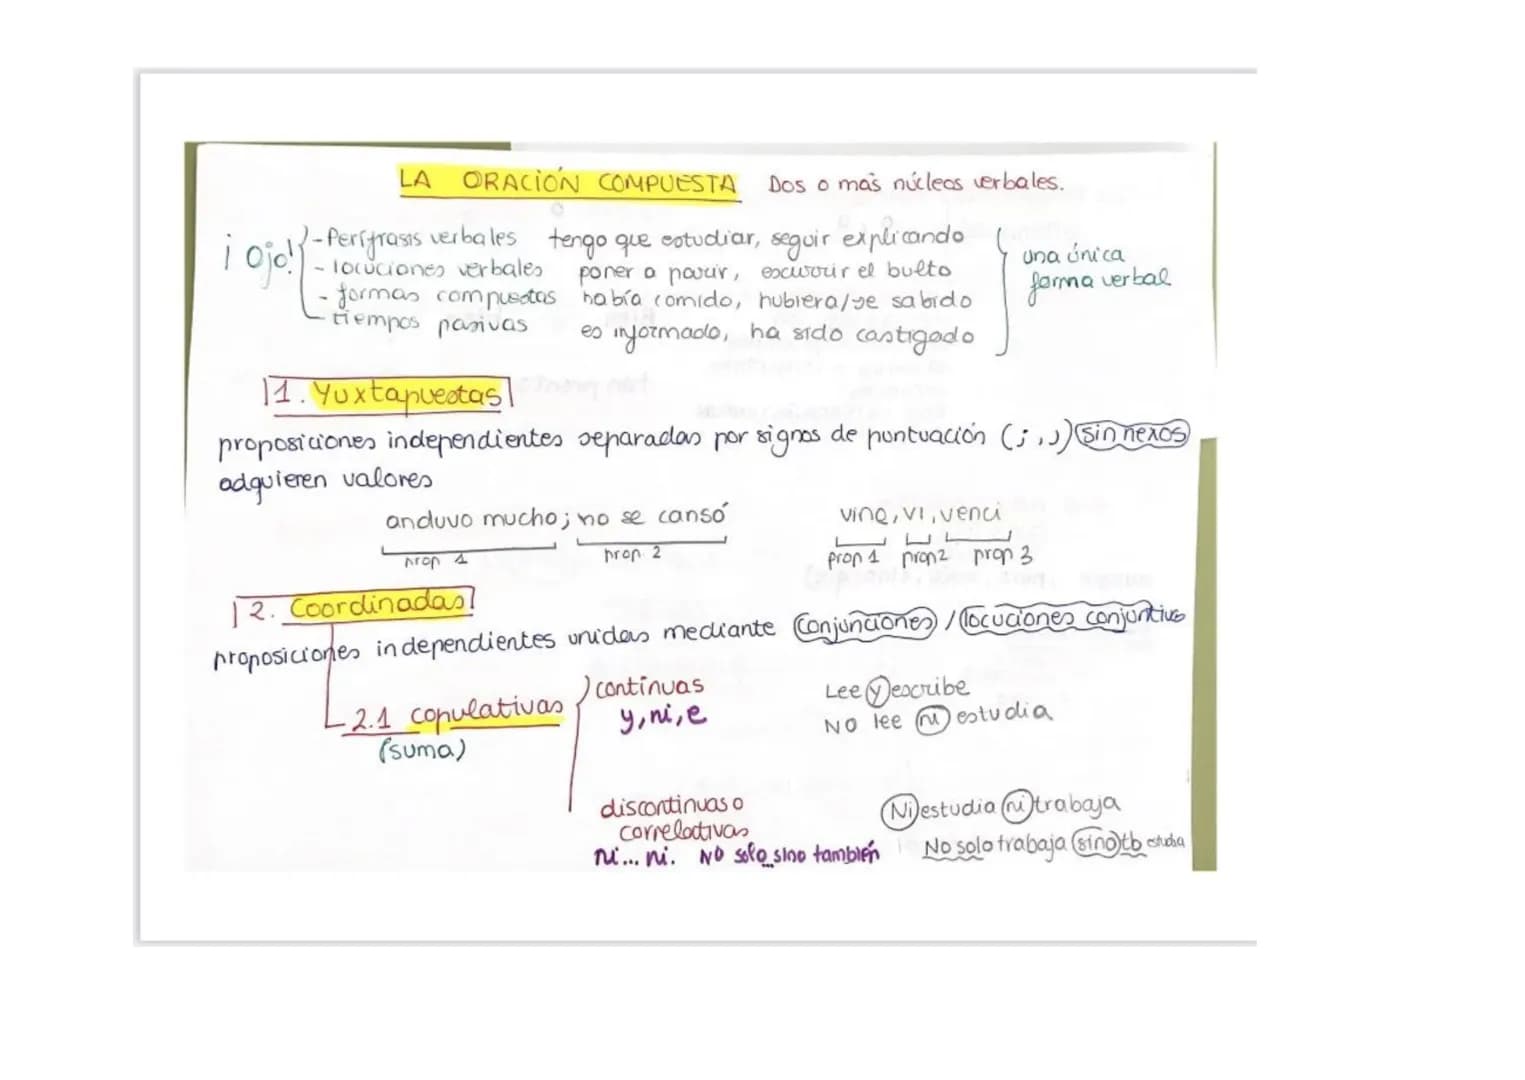 LA ORACIÓN COMPUESTA Dos o más núcleos verbales.
¡Ojo!
-Perífrasis verbales tengo que estudiar, seguir explicando
- locuciones verbales poner a parir, escurrir el bulto
- formas compuestas había comido, hubiera/se sabido
- tiempos pasivas es informado, ha sido castigado
una única
forma verbal
1. Yuxtapuestas
proposiciones independientes separadas por signos de puntuación (; . ,) sin nexos
adquieren valores
anduvo mucho; no se cansó vine, vi, venci
prop 1 prop. 2 prop 1 prop 2 prop 3
2. Coordinadas
proposiciones independientes unidas mediante conjunciones / locuciones conjuntivas
2.1 copulativas
(suma)
continuas
y, ni, e
Lee y escribe
No lee ni estudia
discontinuas o
correlativas
ni... ni. No solo sino también
Ni estudia ni trabaja
No solo trabaja sino tb estudia